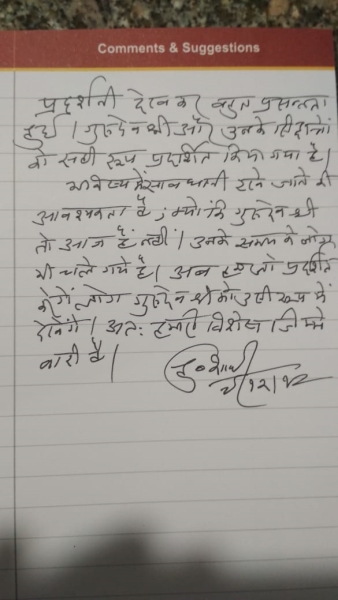 Comments & Suggestions
प्रदर्शनी देखकर बहुत प्रसन्नता
हुई । गुरुदेव श्री और उनके सिद्धान्तों
को सही रूप प्रदर्शित किया गया है।
भविष्य में सावधानी बरते जाने की
आवश्यकता है, क्योंकि गुरुदेव श्री
तो आज हैं नहीं। उनके समय के लोग
भी चले गये हैं। अब हम जो प्रदर्शित
करेंगे लोग गुरुदेव श्री को उसी रूप में
देखेंगे। अतः हमारी विशेष जिम्मे
वारी है।